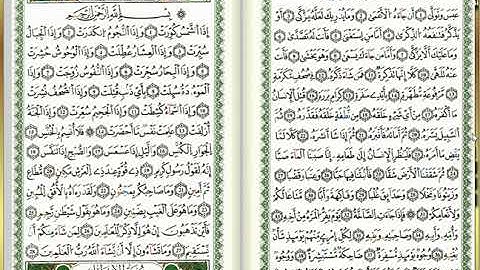 عَبَسَ وَتَوَلَّىٰ ١ أَن جَاءَهُ الْأَعْمَىٰ ٢ وَمَا يُدْرِيكَ لَعَلَّهُ يَزَّكَّىٰ ٣ أَوْ
يَذَّكَّرُ فَتَنفَعَهُ الذِّكْرَىٰ ٤ أَمَّا مَنِ اسْتَغْنَىٰ ٥ فَأَنتَ لَهُ تَصَدَّىٰ ٦
وَمَا عَلَيْكَ أَلَّا يَزَّكَّىٰ ٧ وَأَمَّا مَن جَاءَكَ يَسْعَىٰ ٨ وَهُوَ يَخْشَىٰ ٩ فَأَنتَ
عَنْهُ تَلَهَّىٰ ١٠ كَلَّا إِنَّهَا تَذْكِرَةٌ ١١ فَمَن شَاءَ ذَكَرَهُ ١٢ فِي صُحُفٍ مُّكَرَّمَةٍ ١٣
مَّرْفُوعَةٍ مُّطَهَّرَةٍ ١٤ بِأَيْدِي سَفَرَةٍ ١٥ كِرَامٍ بَرَرَةٍ ١٦ قُتِلَ الْإِنسَانُ
مَا أَكْفَرَهُ ١٧ مِنْ أَيِّ شَيْءٍ خَلَقَهُ ١٨ مِن نُّطْفَةٍ خَلَقَهُ فَقَدَّرَهُ ١٩ ثُمَّ
السَّبِيلَ يَسَّرَهُ ٢٠ ثُمَّ أَمَاتَهُ فَأَقْبَرَهُ ٢١ ثُمَّ إِذَا شَاءَ أَنشَرَهُ ٢٢ كَلَّا لَمَّا
يَقْضِ مَا أَمَرَهُ ٢٣ فَلْيَنظُرِ الْإِنسَانُ إِلَىٰ طَعَامِهِ ٢٤ أَنَّا صَبَبْنَا الْمَاءَ صَبًّا
٢٥ ثُمَّ شَقَقْنَا الْأَرْضَ شَقًّا ٢٦ فَأَنبَتْنَا فِيهَا حَبًّا ٢٧ وَعِنَبًا وَقَضْبًا ٢٨
وَزَيْتُونًا وَنَخْلًا ٢٩ وَحَدَائِقَ غُلْبًا ٣٠ وَفَاكِهَةً وَأَبًّا ٣١ مَّتَاعًا لَّكُمْ
وَلِأَنْعَامِكُمْ ٣٢ فَإِذَا جَاءَتِ الصَّاخَّةُ ٣٣ يَوْمَ يَفِرُّ الْمَرْءُ مِنْ أَخِيهِ ٣٤
وَأُمِّهِ وَأَبِيهِ ٣٥ وَصَاحِبَتِهِ وَبَنِيهِ ٣٦ لِكُلِّ امْرِئٍ مِّنْهُمْ يَوْمَئِذٍ شَأْنٌ
يُغْنِيهِ ٣٧ وُجُوهٌ يَوْمَئِذٍ مُّسْفِرَةٌ ٣٨ ضَاحِكَةٌ مُّسْتَبْشِرَةٌ ٣٩ وَوُجُوهٌ
بِسْمِ اللَّهِ الرَّحْمَٰنِ الرَّحِيمِ
إِذَا الشَّمْسُ كُوِّرَتْ ١ وَإِذَا النُّجُومُ انكَدَرَتْ ٢ وَإِذَا الْجِبَالُ
سُيِّرَتْ ٣ وَإِذَا الْعِشَارُ عُطِّلَتْ ٤ وَإِذَا الْوُحُوشُ حُشِرَتْ
٥ وَإِذَا الْبِحَارُ سُجِّرَتْ ٦ وَإِذَا النُّفُوسُ زُوِّجَتْ ٧ وَإِذَا
الْمَوْءُودَةُ سُئِلَتْ ٨ بِأَيِّ ذَنبٍ قُتِلَتْ ٩ وَإِذَا الصُّحُفُ نُشِرَتْ
١٠ وَإِذَا السَّمَاءُ كُشِطَتْ ١١ وَإِذَا الْجَحِيمُ سُعِّرَتْ ١٢ وَإِذَا الْجَنَّةُ
أُزْلِفَتْ ١٣ عَلِمَتْ نَفْسٌ مَّا أَحْضَرَتْ ١٤ فَلَا أُقْسِمُ بِالْخُنَّسِ ١٥
الْجَوَارِ الْكُنَّسِ ١٦ وَاللَّيْلِ إِذَا عَسْعَسَ ١٧ وَالصُّبْحِ إِذَا تَنَفَّسَ ١٨
إِنَّهُ لَقَوْلُ رَسُولٍ كَرِيمٍ ١٩ ذِي قُوَّةٍ عِندَ ذِي الْعَرْشِ مَكِينٍ ٢٠ مُّطَاعٍ
ثَمَّ أَمِينٍ ٢١ وَمَا صَاحِبُكُم بِمَجْنُونٍ ٢٢ وَلَقَدْ رَآهُ بِالْأُفُقِ الْمُبِينِ
٢٣ وَمَا هُوَ عَلَى الْغَيْبِ بِضَنِينٍ ٢٤ وَمَا هُوَ بِقَوْلِ شَيْطَانٍ رَّجِيمٍ ٢٥
فَأَيْنَ تَذْهَبُونَ ٢٦ إِنْ هُوَ إِلَّا ذِكْرٌ لِّلْعَالَمِينَ ٢٧ لِمَن شَاءَ مِنكُمْ أَن
يَسْتَقِيمَ ٢٨ وَمَا تَشَاءُونَ إِلَّا أَن يَشَاءَ اللَّهُ رَبُّ الْعَالَمِينَ ٢٩